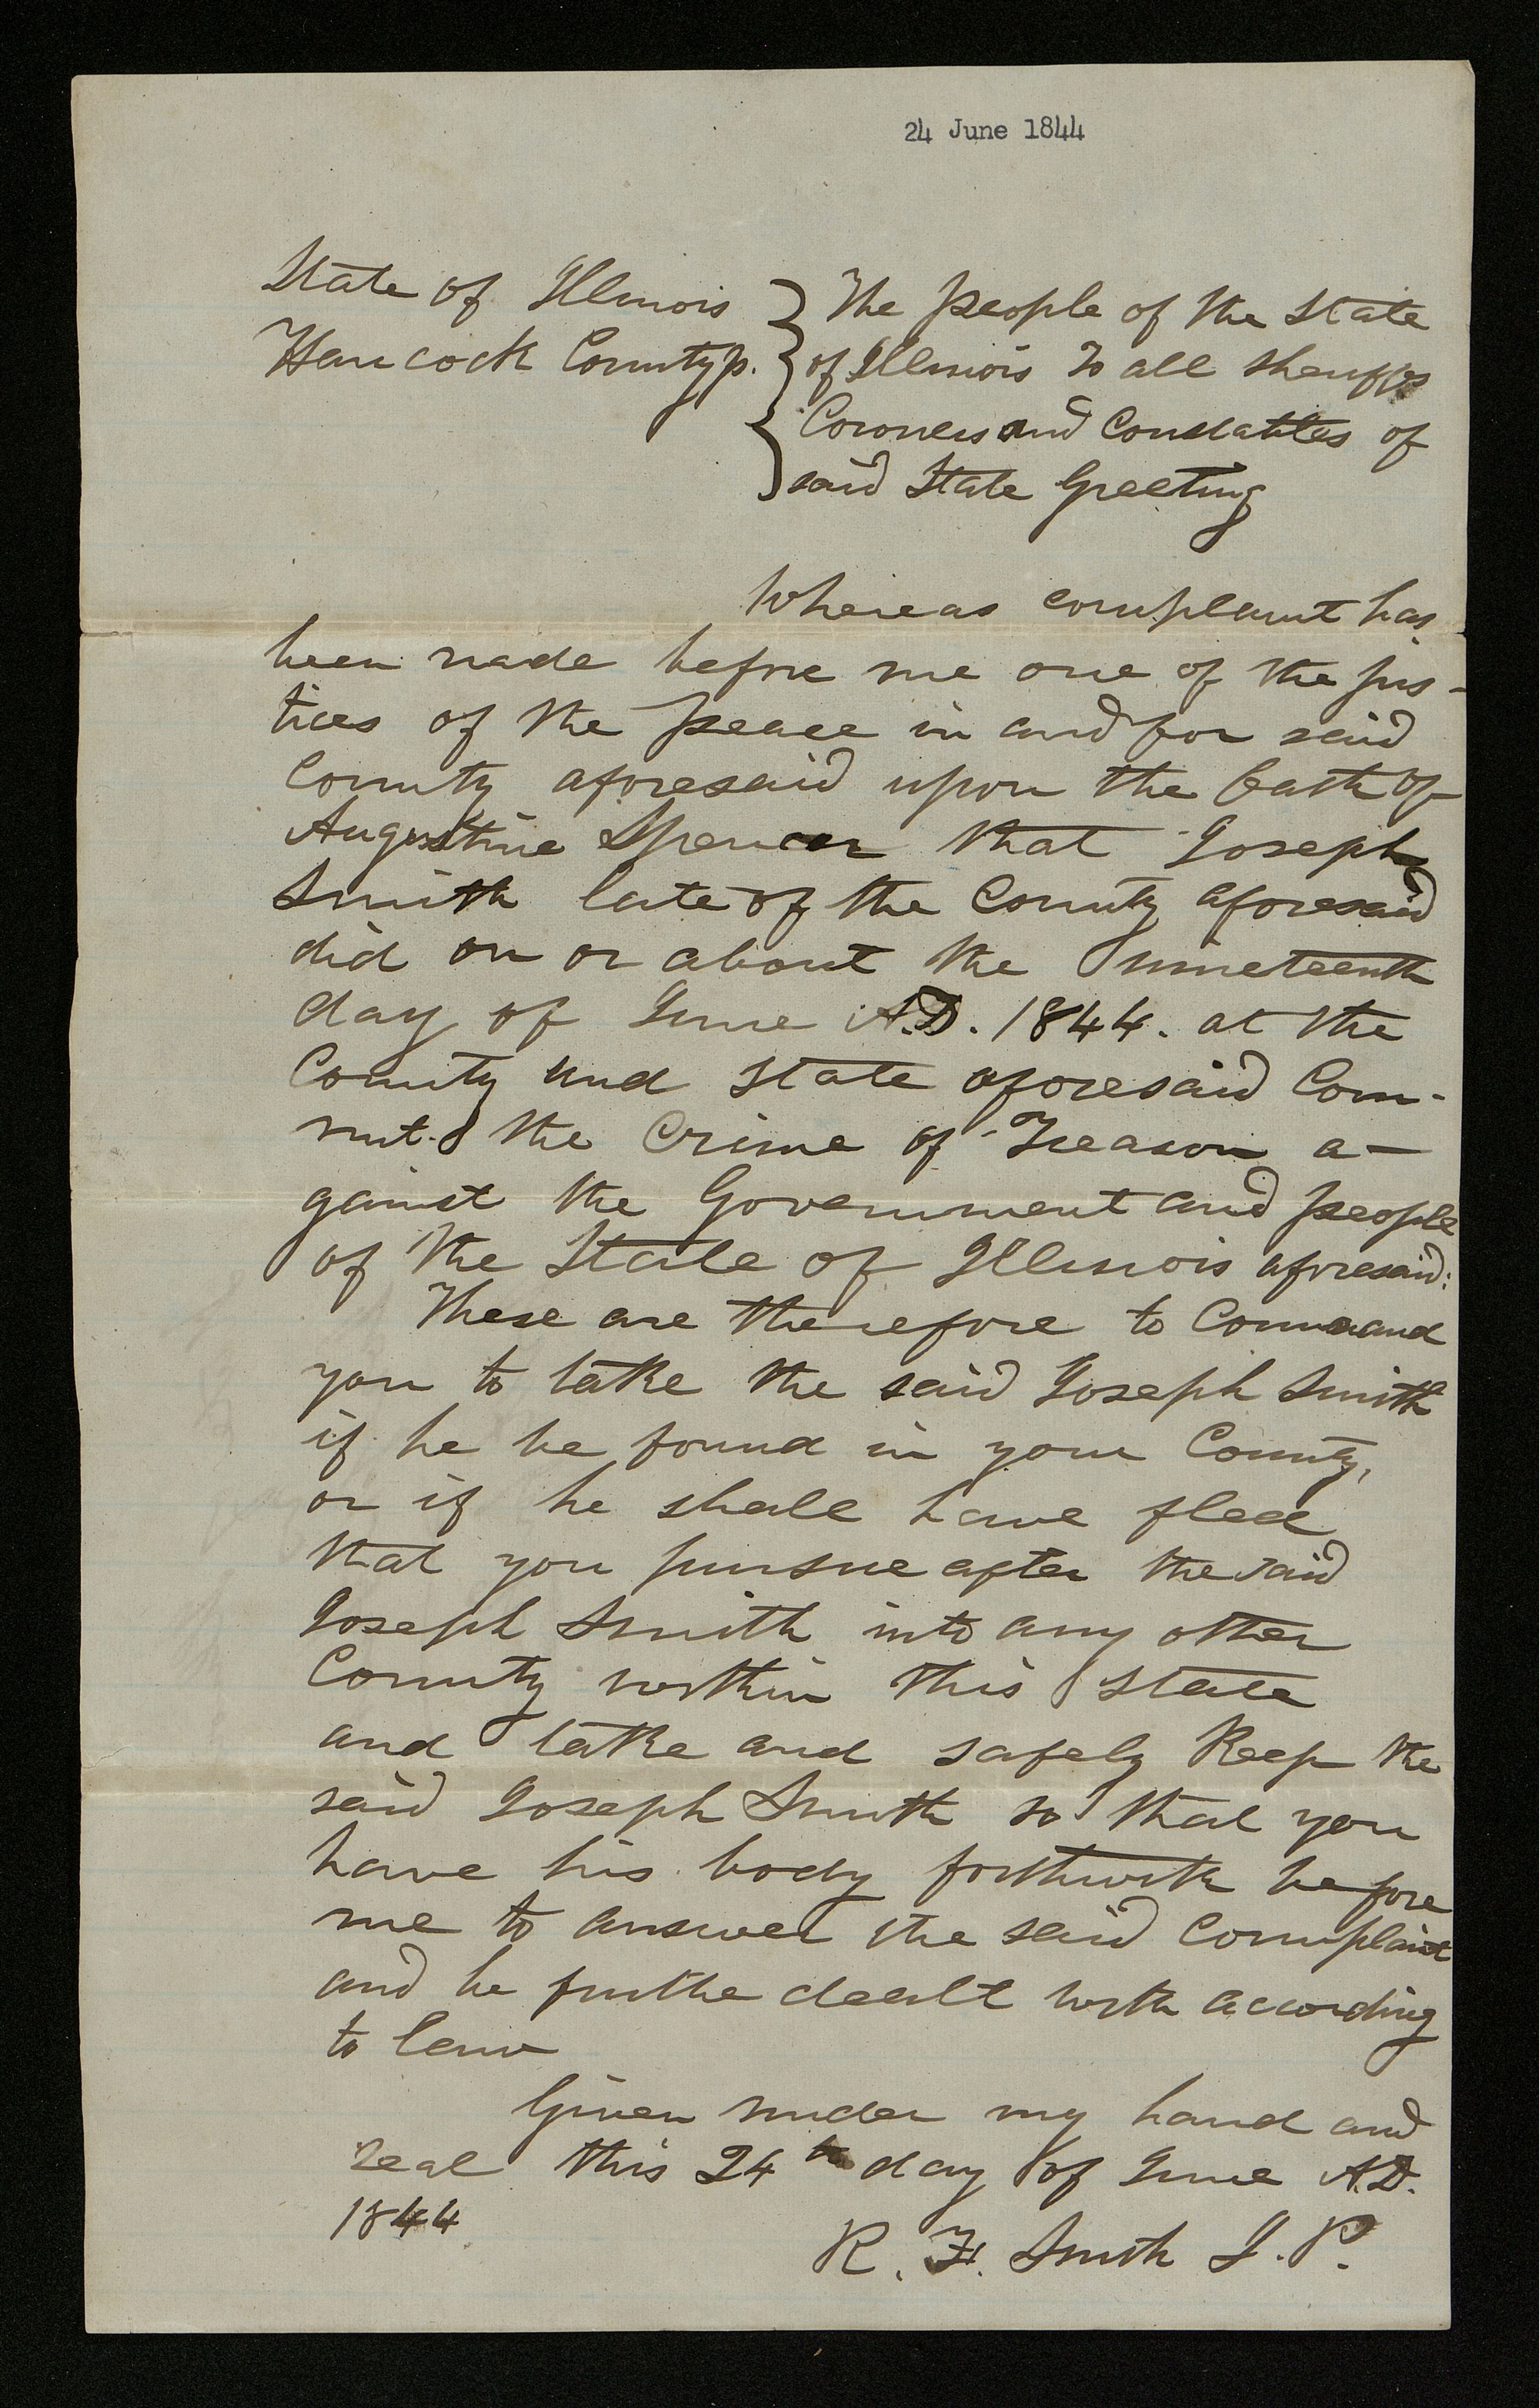 24 June 1844
State of Illinois } The people of the State
Hancock County ss. } of Illinois To all sheriffs
Coroners and Constables of
said State Greeting
Whereas complaint has
been made before me one of the jus-
tices of the peace in and for said
County aforesaid upon the Oath of
Augustine Spencer that Joseph
Smith late of the County aforesaid
did on or about the nineteenth
day of June A.D. 1844. at the
County and State aforesaid Com-
mit the Crime of Treason a-
gainst the Government and people
of the State of Illinois aforesaid:
These are therefore to Command
you to take the said Joseph Smith
if he be found in your County,
or if he shall have fled
that you pursue after the said
Joseph Smith into any other
County within this State
and take and safely Keep the
said Joseph Smith so that you
have his body forthwith before
me to answer the said Complaint
and be furthe dealt with according
to law
Given under my hand and
seal this 24th day of June A.D.
1844
R. F. Smith J. P.